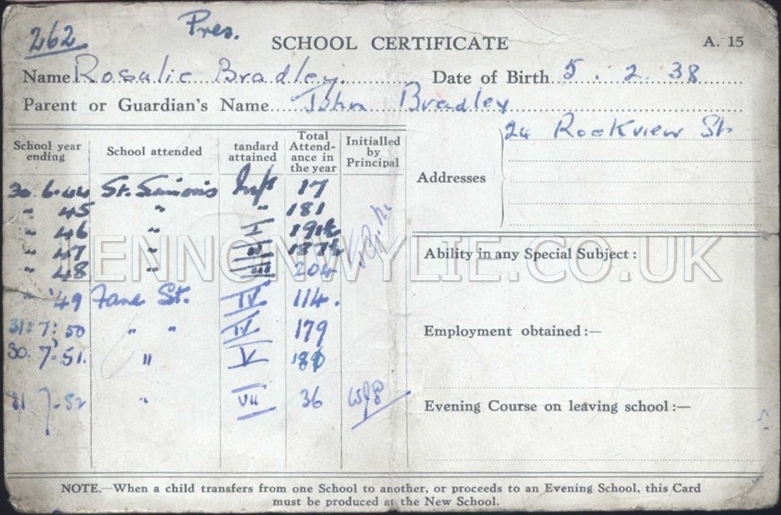 262 Pres.
SCHOOL CERTIFICATE A. 15
Name Rosalie Bradley. Date of Birth 5. 2. 38
Parent or Guardian's Name John Bradley
School year ending School attended tandard attained Total Attend-ance in the year Initialled by Principal
Addresses 24 Rockview St.
30.6.44 St. Simon's Inf. 17
" 45 " " 181
" 46 " I 191½
" 47 " II 187½
" 48 " III 204
LENNONWYLIE.CO.UK
Ability in any Special Subject :
" '49 Fane St. IV 114.
31.7.50 " " IV 179
Employment obtained :—
30.7.51. " V
31 7.52 " VII 36
Evening Course on leaving school :—
NOTE.—When a child transfers from one School to another, or proceeds to an Evening School, this Card
must be produced at the New School.